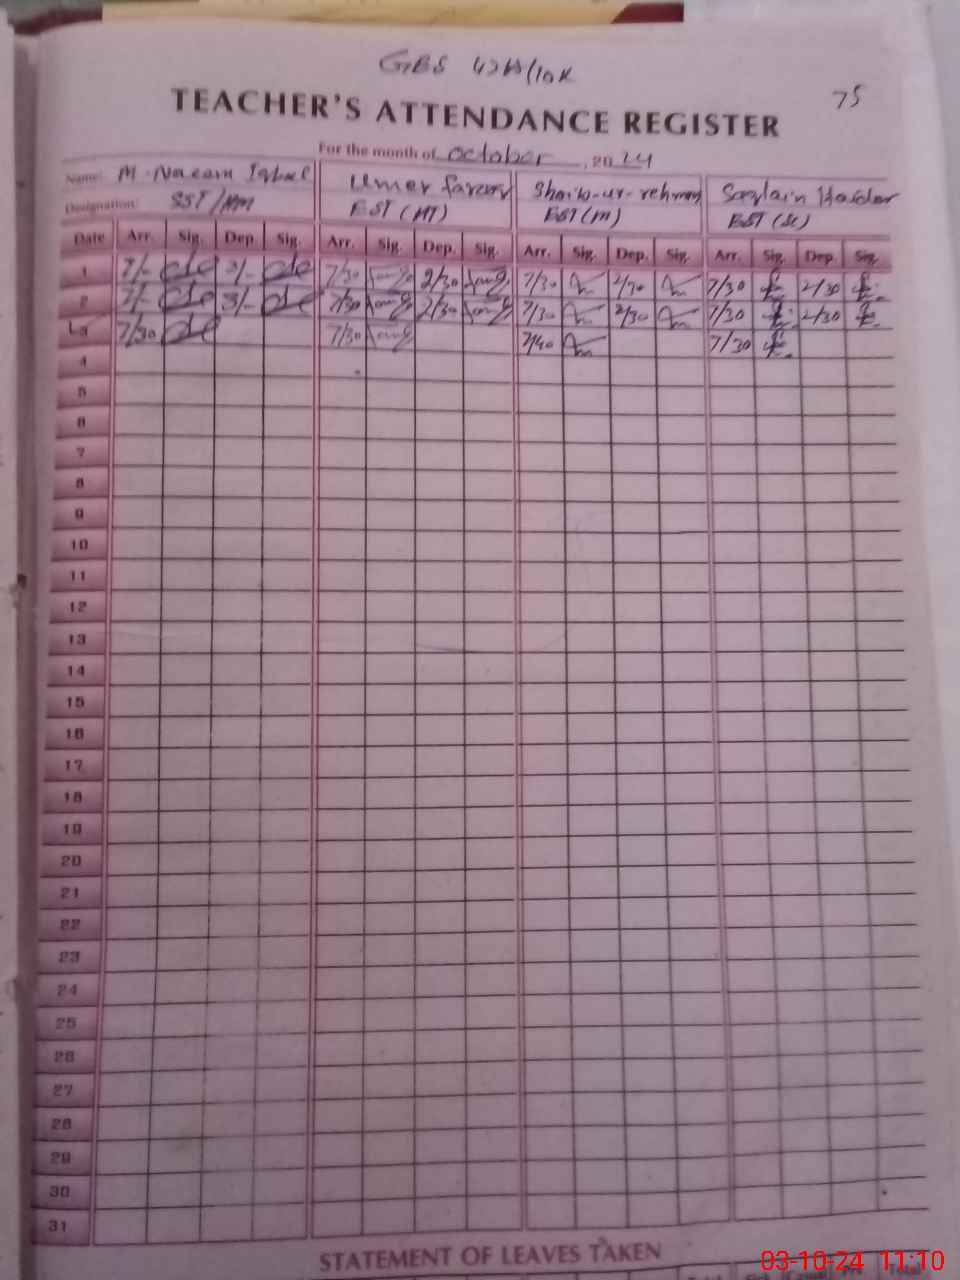 GBS
75
TEACHER'S ATTENDANCE REGISTER
For the month of October, 2024
Name: M. Naeem Iqbal Umer farooq Shoib-ur-rehman Saqlain Haider
Designation: SST/ EST (MT) EST (M) EST (SC)
Date Arr. Sig. Dep. Sig. Arr. Sig. Dep. Sig. Arr. Sig. Dep. Sig. Arr. Sig. Dep. Sig.
1 7/- 3/- 7/30 2/30 7/30 2/30 7/30 2/30
2 7/- 3/- 7/30 2/30 7/30 2/30 7/30 2/30
3 7/30 7/30 7/40 7/30
4
5
6
7
8
9
10
11
12
13
14
15
16
17
18
19
20
21
22
23
24
25
26
27
28
29
30
31
STATEMENT OF LEAVES TAKEN
03-10-24 11:10